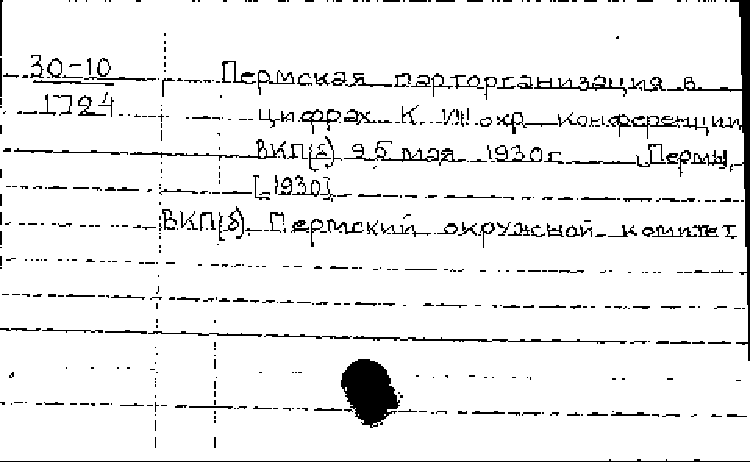 30-10
1724
Пермская парторганизация в
цифрах. К VIII окр. конференции
ВКП(б) 25 мая 1930г. Пермь,
[1930].
ВКП(б). Пермский окружной комитет